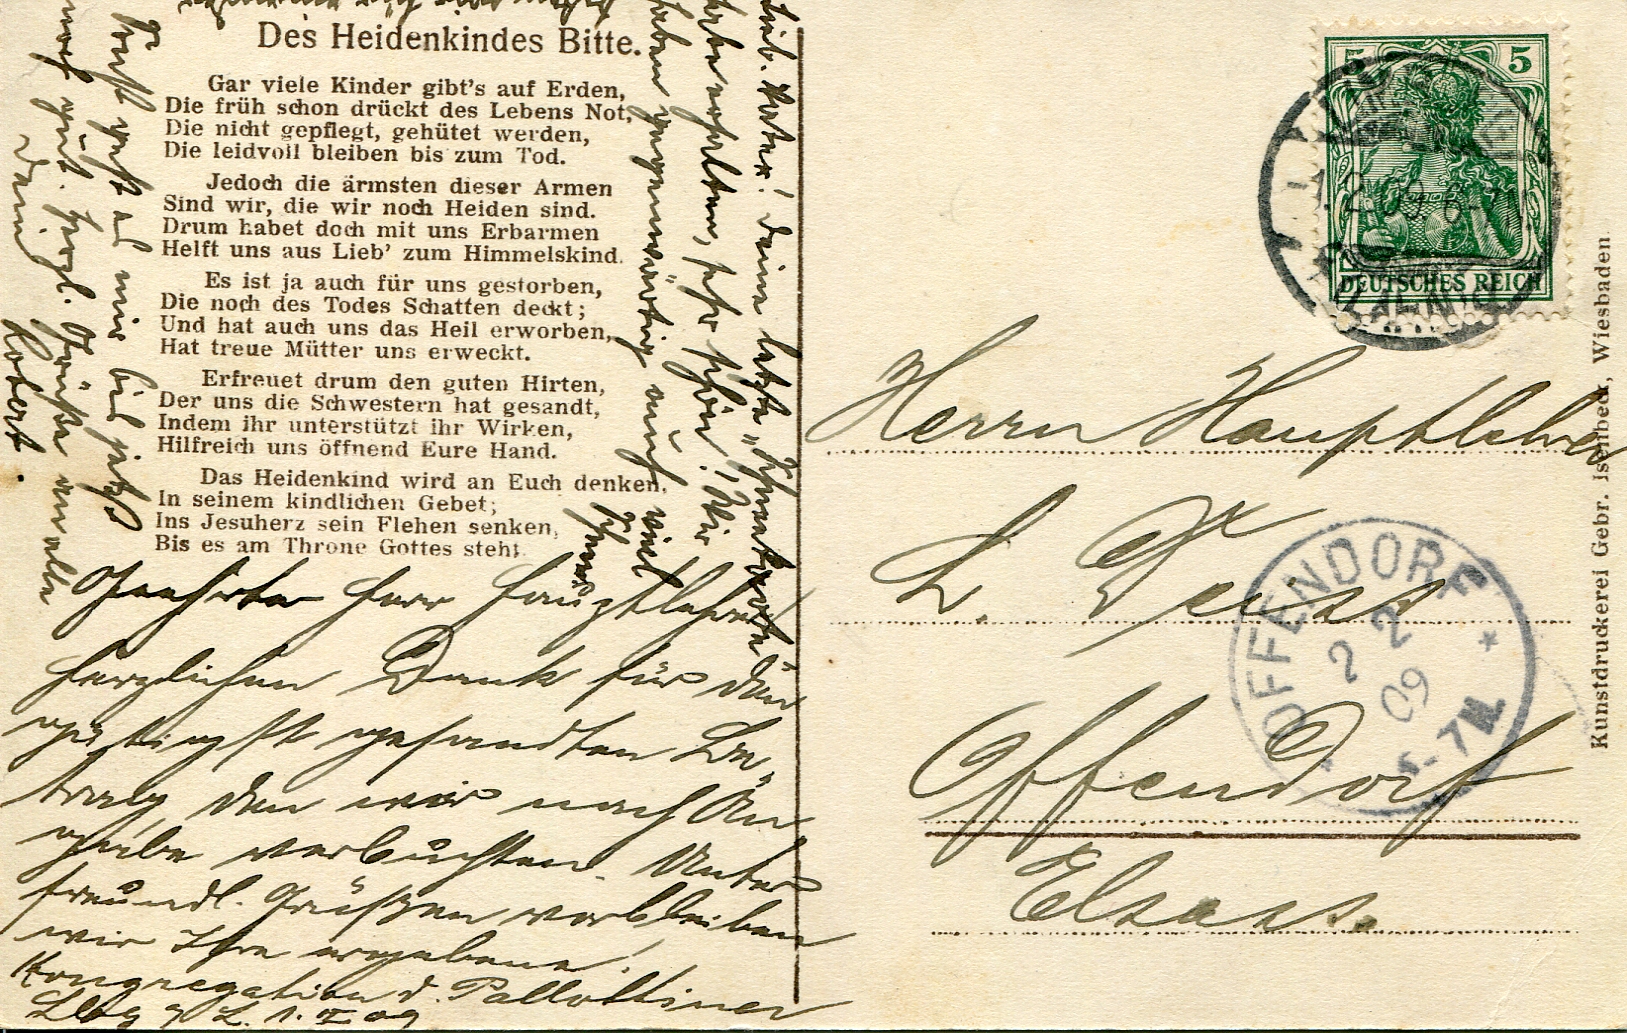 Des Heidenkindes Bitte.
Gar viele Kinder gibt's auf Erden,
Die früh schon drückt des Lebens Not,
Die nicht gepflegt, gehütet werden,
Die leidvoll bleiben bis zum Tod.
Jedoch die ärmsten dieser Armen
Sind wir, die wir noch Heiden sind.
Drum habet doch mit uns Erbarmen
Helft uns aus Lieb' zum Himmelskind.
Es ist ja auch für uns gestorben,
Die noch des Todes Schatten deckt;
Und hat auch uns das Heil erworben,
Hat treue Mütter uns erweckt.
Erfreuet drum den guten Hirten,
Der uns die Schwestern hat gesandt,
Indem ihr unterstützt ihr Wirken,
Hilfreich uns öffnend Eure Hand.
Das Heidenkind wird an Euch denken,
In seinem kindlichen Gebet;
Ins Jesuherz sein Flehen senken,
Bis es am Throne Gottes steht.
Geehrter Herr Hauptlehrer!
Herzlichen Dank für den
gütigst gesandten Be-
trag, den wir nach An-
gabe verbuchten. Unter
freundl. Grüßen verbleiben
wir Ihre ergebene!
Kongregation d. Pallottiner
Lbg a. L. 1. II 09
Lieb. Vater! Deine letzte
habe erhalten, sehr schön! Wir
haben gegenwärtig auch viel
Sonst geht es mir bis jetzt
noch gut. Herzl. Grüße an alle
Dein
Robert.
5 5
DEUTSCHES REICH
1.2.09
Herrn Hauptlehrer
L. Deiss
Offendorf
Elsass.
OFFENDORF
2 2
09
6-7N.
Kunstdruckerei Gebr. Isenbeck, Wiesbaden.